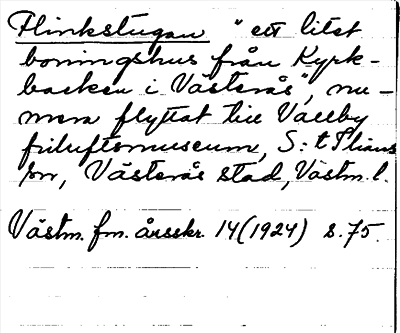 Flinkstugan "ett litet
boningshus från Kyrk-
backen i Västerås", nu-
mera flyttat till Vallby
friluftsmuseum, S:t Ilians
sn, Västerås stad, Västm. l.
Västm. fm. årsskr. 14 (1924) s. 75.